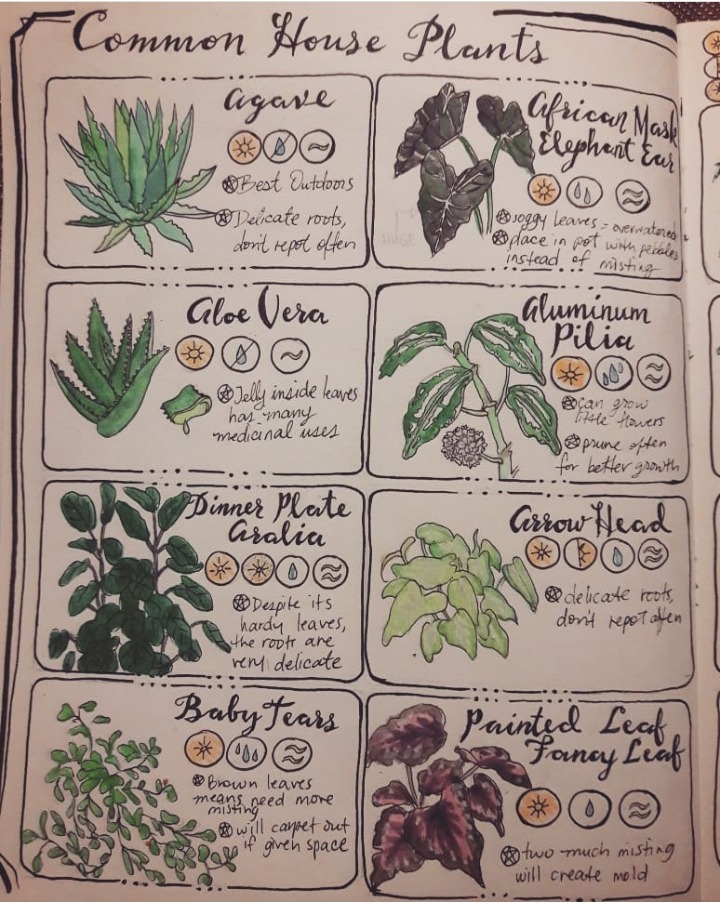 Common House Plants
Agave
Best Outdoors
Delicate roots,
don't repot often
African Mask
Elephant Ear
soggy leaves = overwatered
place in pot with pebbles
instead of misting
HUGE
Aloe Vera
Jelly inside leaves
has many
medicinal uses
Aluminum
Pilia
can grow
little flowers
prune often
for better growth
Dinner Plate
Aralia
Despite its
hardy leaves,
the roots are
very delicate
Arrow Head
delicate roots,
don't repot often
Baby Tears
Brown leaves
means need more
misting
will carpet out
if given space
Painted Leaf
Fancy Leaf
two much misting
will create mold